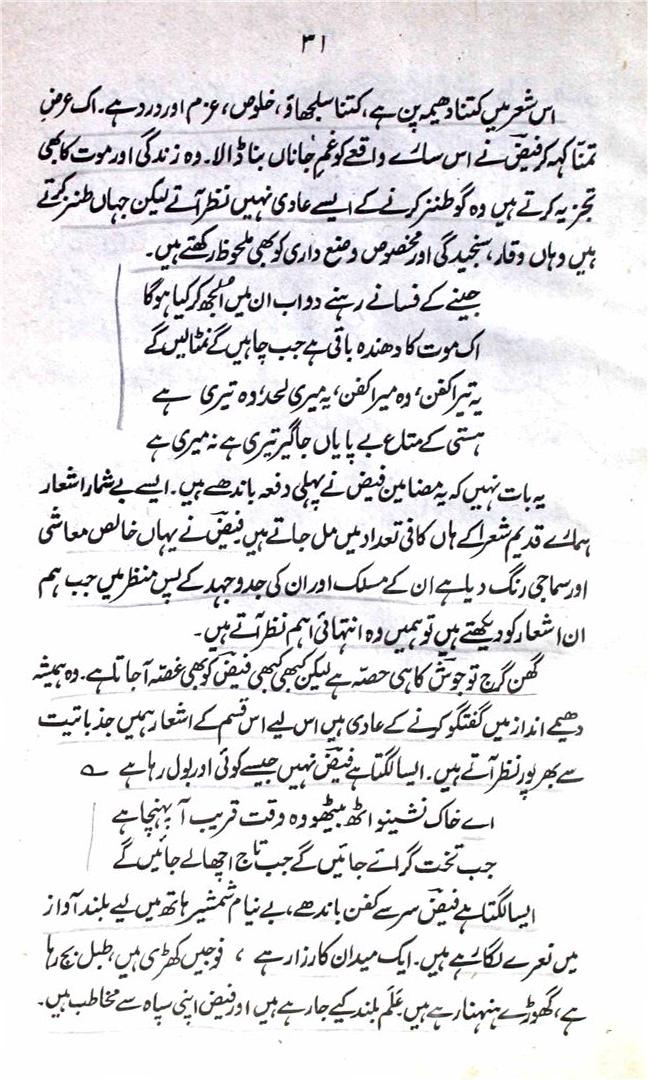 ۳۱
اس شعر میں کتنا دھیمہ پن ہے، کتنا سلجھاؤ، خلوص، عزم اور درد ہے۔ اک عرضِ
تمنّا کہہ کر فیضؔ نے اس سارے واقعے کو غمِ جاناں بنا ڈالا۔ وہ زندگی اور موت کا بھی
تجزیہ کرتے ہیں وہ گو طنز کرنے کے ایسے عادی نہیں نظر آتے لیکن جہاں طنز کرتے
ہیں وہاں وقار، سنجیدگی اور مخصوص وضع داری کو بھی ملحوظ رکھتے ہیں۔
جینے کے فسانے رہنے دو اب ان میں اُلجھ کر کیا ہوگا
اک موت کا دھندہ باقی ہے جب چاہیں گے نمٹا لیں گے
یہ تیرا کفن، وہ میرا کفن، یہ میری لحد، وہ تیری ہے
ہستی کے متاعِ بے پایاں جاگیر تیری ہے نہ میری ہے
یہ بات نہیں کہ یہ مضامین فیض نے پہلی دفعہ باندھے ہیں۔ ایسے بے شمار اشعار
ہمارے قدیم شعرا کے ہاں کافی تعداد میں مل جاتے ہیں فیضؔ نے یہاں خالص معاشی
اور سماجی رنگ دیا ہے ان کے مسلک اور ان کی جدوجہد کے پس منظر میں جب ہم
ان اشعار کو دیکھتے ہیں تو ہمیں وہ انتہائی اہم نظر آتے ہیں۔
گھن گرج تو جوشؔ کا ہی حصّہ ہے لیکن کبھی کبھی فیضؔ کو بھی غصّہ آ جاتا ہے۔ وہ ہمیشہ
دھیمے انداز میں گفتگو کرنے کے عادی ہیں اس لیے اس قسم کے اشعار ہمیں جذباتیت
سے بھرپور نظر آتے ہیں۔ ایسا لگتا ہے فیضؔ نہیں جیسے کوئی اور بول رہا ہے ؎
اے خاک نشینو اٹھ بیٹھو وہ وقت قریب آ پہنچا ہے
جب تخت گرائے جائیں گے جب تاج اچھالے جائیں گے
ایسا لگتا ہے فیضؔ سر سے کفن باندھے، بے نیام شمشیر ہاتھ میں لیے بلند آواز
میں نعرے لگا رہے ہیں۔ ایک میدانِ کارزار ہے، فوجیں کھڑی ہیں، طبل بج رہا
ہے، گھوڑے ہنہنا رہے ہیں عَلَم بلند کیے جا رہے ہیں اور فیض اپنی سپاہ سے مخاطب ہیں۔